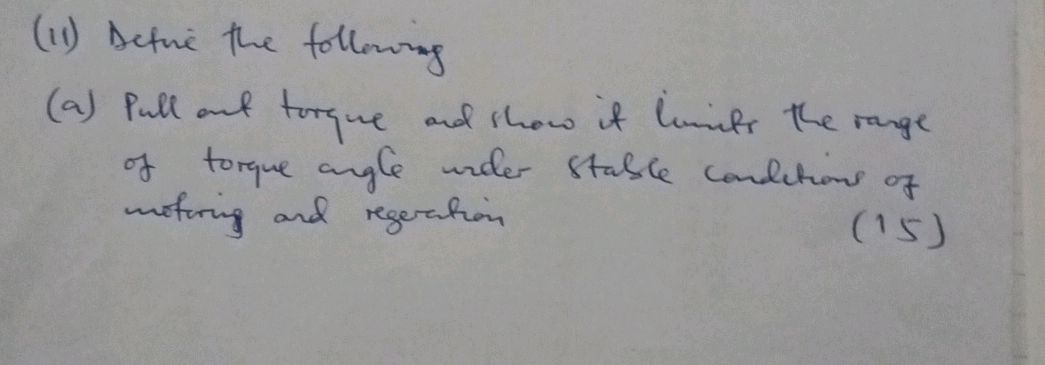 (11) Define the following
(a) Pull out torque and show it limits the range
of torque angle under stable conditions of
motoring and regeration
(15)